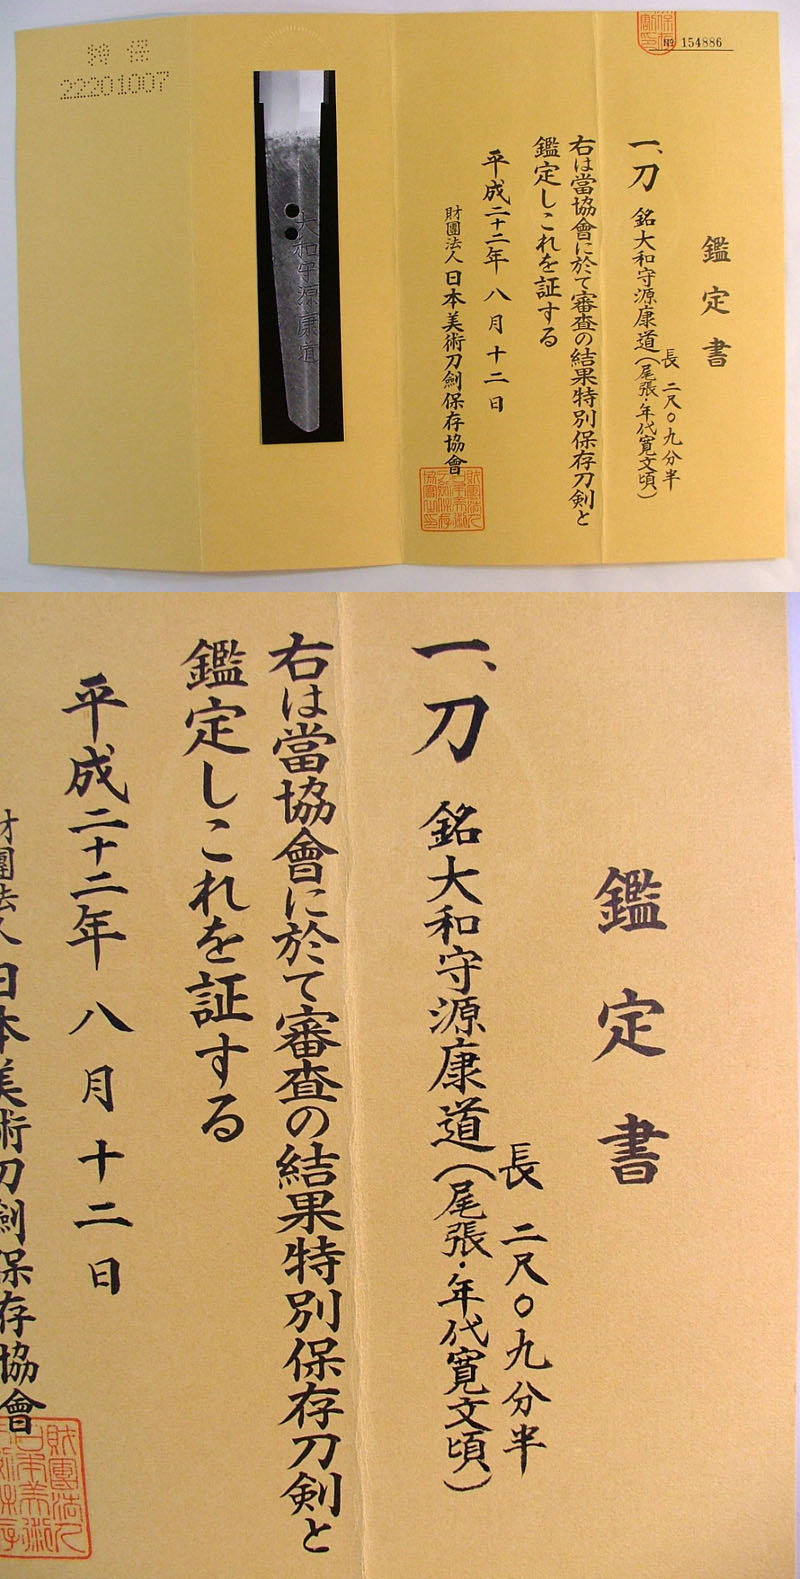 特保
22201007
大和守源康道
№ 154886
鑑定書
一、刀 銘大和守源康道(尾張・年代寛文頃)
長 二尺〇九分半
右は當協會に於て審査の結果特別保存刀剣と
鑑定しこれを証する
平成二十二年 八月十二日
財團法人 日本美術刀劍保存協會
鑑定書
一、刀 銘大和守源康道(尾張・年代寛文頃)
長 二尺〇九分半
右は當協會に於て審査の結果特別保存刀剣と
鑑定しこれを証する
平成二十二年 八月十二日
財團法人 日本美術刀劍保存協會